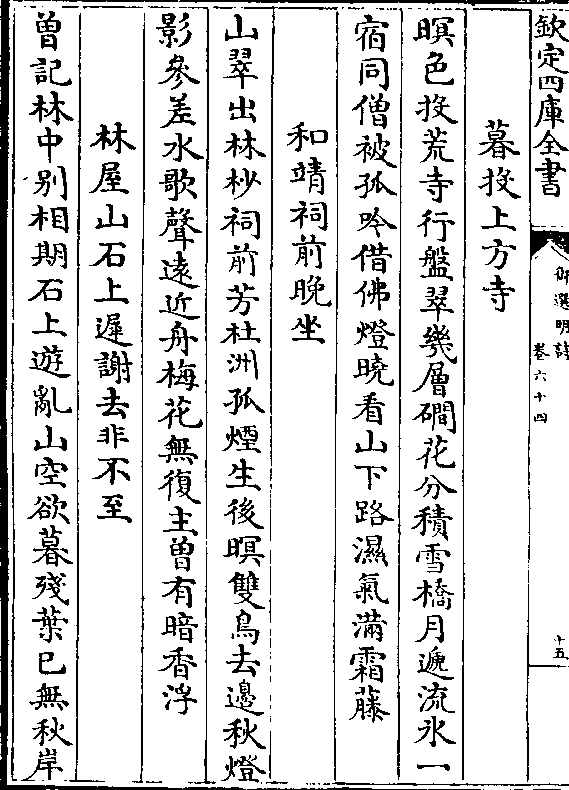 欽定四庫全書
御選明詩
卷六十四
十五
暮投上方寺
暝色投荒寺行盤翠幾層磵花分積雪橋月遞流氷一
宿同僧被孤吟借佛燈曉看山下路濕氣滿霜藤
和靖祠前晚坐
山翠出林杪祠前芳杜洲孤煙生後暝雙鳥去邊秋燈
影參差水歌聲遠近舟梅花無復主曽有暗香浮
林屋山石上遲謝去非不至
曽記林中别相期石上遊亂山空欲暮殘葉已無秋岸